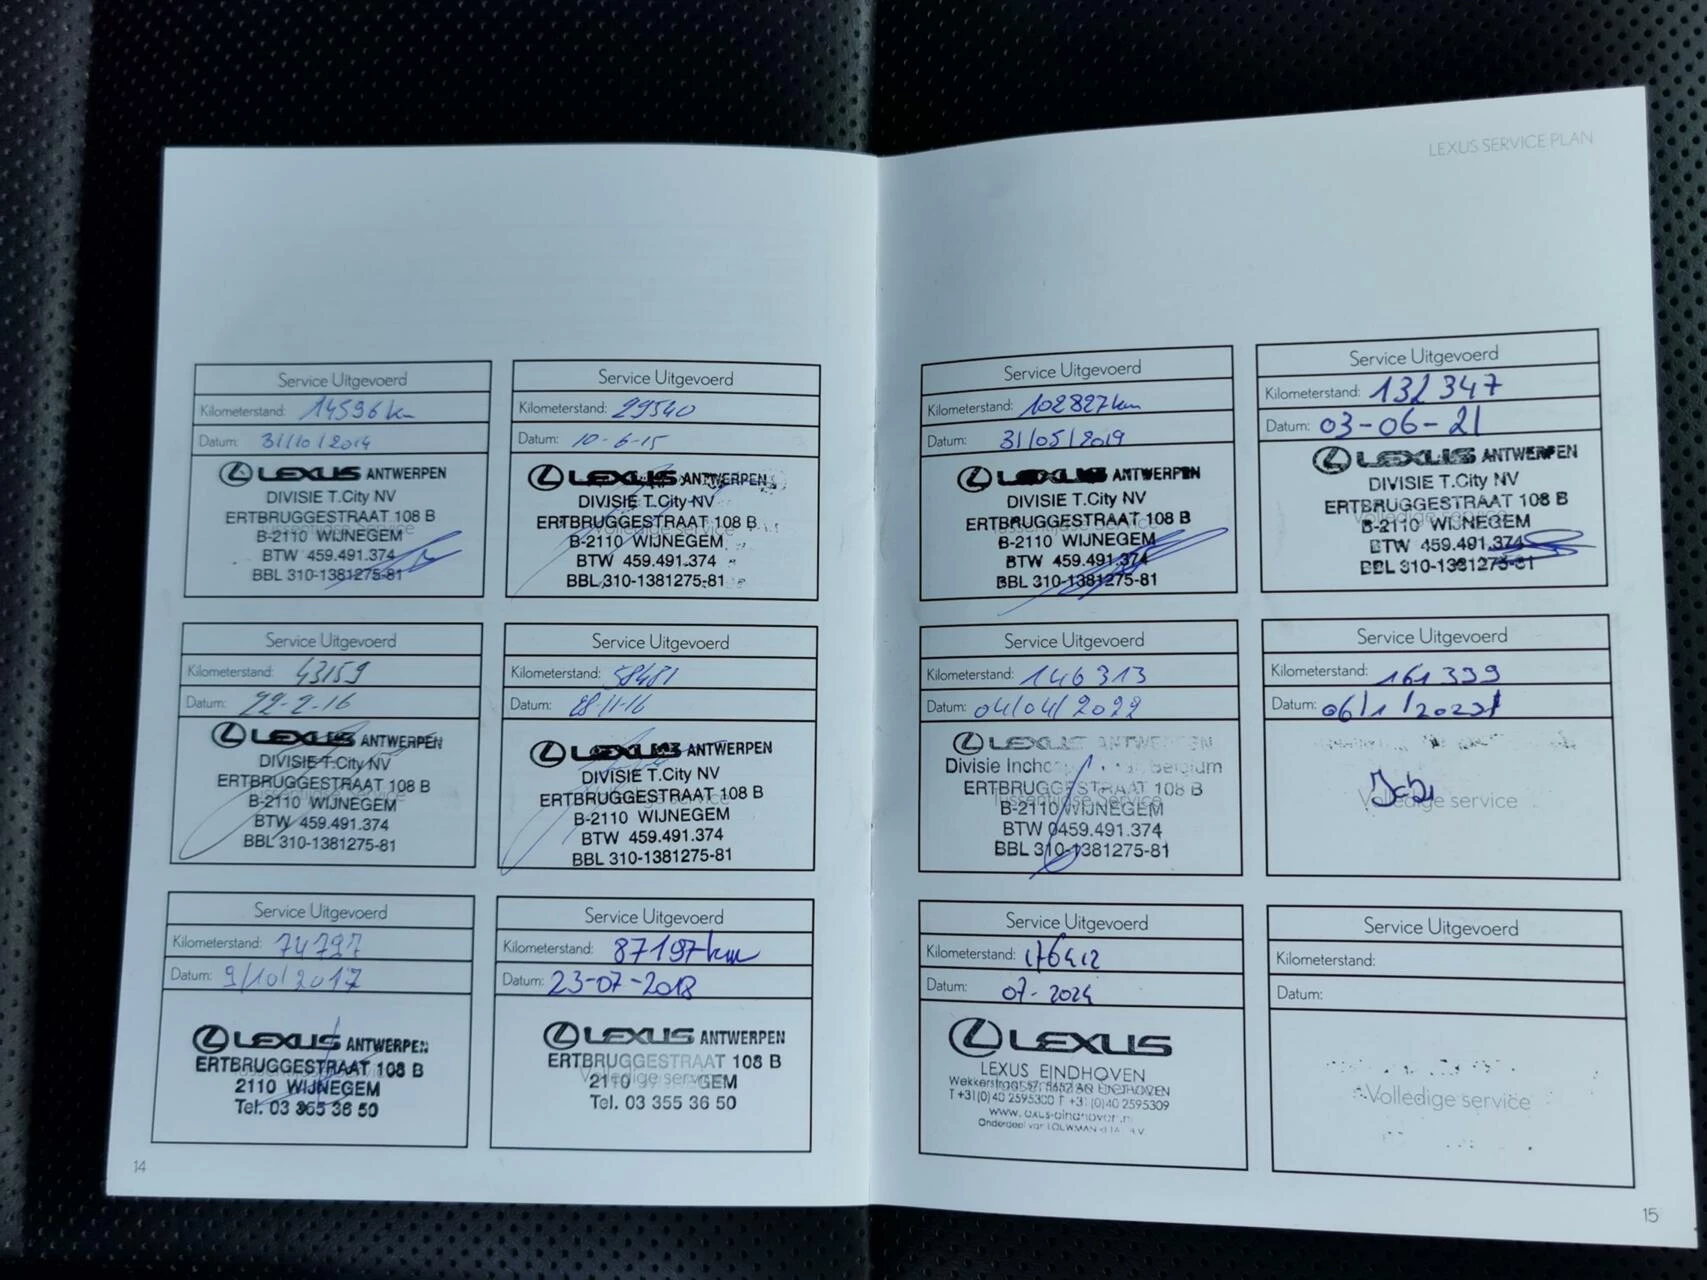 LEXUS SERVICE PLAN
Service Uitgevoerd
Kilometerstand: 14596 km
Datum: 31/10/2014
LEXUS ANTWERPEN
DIVISIE T.City NV
ERTBRUGGESTRAAT 108 B
B-2110 WIJNEGEM
BTW 459.491.374
BBL 310-1381275-81
Service Uitgevoerd
Kilometerstand: 29540
Datum: 10-6-15
LEXUS ANTWERPEN
DIVISIE T.City NV
ERTBRUGGESTRAAT 108 B
Volledige service
B-2110 WIJNEGEM
BTW 459.491.374
BBL 310-1381275-81
Service Uitgevoerd
Kilometerstand: 43159
Datum: 22-2-16
LEXUS ANTWERPEN
DIVISIE T.City NV
ERTBRUGGESTRAAT 108 B
B-2110 WIJNEGEM
BTW 459.491.374
BBL 310-1381275-81
Service Uitgevoerd
Kilometerstand: 58481
Datum: 28-11-16
LEXUS ANTWERPEN
DIVISIE T.City NV
ERTBRUGGESTRAAT 108 B
Volledige service
B-2110 WIJNEGEM
BTW 459.491.374
BBL 310-1381275-81
Service Uitgevoerd
Kilometerstand: 74797
Datum: 9/10/2017
LEXUS ANTWERPEN
ERTBRUGGESTRAAT 108 B
2110 WIJNEGEM
Tel. 03 355 36 50
Service Uitgevoerd
Kilometerstand: 87197 km
Datum: 23-07-2018
LEXUS ANTWERPEN
ERTBRUGGESTRAAT 108 B
Volledige service
2110 GEM
Tel. 03 355 36 50
14
Service Uitgevoerd
Kilometerstand: 102827 km
Datum: 31/05/2019
LEXUS ANTWERPEN
DIVISIE T.City NV
ERTBRUGGESTRAAT 108 B
B-2110 WIJNEGEM
BTW 459.491.374
BBL 310-1381275-81
Service Uitgevoerd
Kilometerstand: 132 347
Datum: 03-06-21
LEXUS ANTWERPEN
DIVISIE T.City NV
ERTBRUGGESTRAAT 108 B
Volledige service
B-2110 WIJNEGEM
BTW 459.491.374
BBL 310-1381275-81
Service Uitgevoerd
Kilometerstand: 146 313
Datum: 04/04/2022
LEXUS ANTWERPEN
Divisie Belgium
ERTBRUGGESTRAAT 108 B
B-2110 WIJNEGEM
BTW 0459.491.374
BBL 310-1381275-81
Service Uitgevoerd
Kilometerstand: 161 339
Datum:
Volledige service
Service Uitgevoerd
Kilometerstand: 176412
Datum: 07-2024
LEXUS
LEXUS EINDHOVEN
Wekkerstraat 57, 5652 AN EINDHOVEN
T +31(0)40 2595300 F +31(0)40 2595309
Service Uitgevoerd
Kilometerstand:
Datum:
Volledige service
15